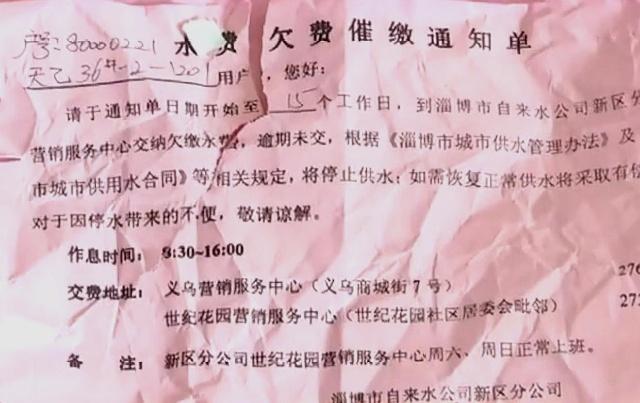 户号:80000221 水费欠费催缴通知单
天乙36#-2-1201用户,您好:
请于通知单日期开始至15个工作日,到淄博市自来水公司新区分
营销服务中心交纳欠缴水费,逾期未交,根据《淄博市城市供水管理办法》及
市城市供用水合同》等相关规定,将停止供水;如需恢复正常供水将采取有偿
对于因停水带来的不便,敬请谅解。
作息时间: 8:30~16:00
交费地址: 义乌营销服务中心(义乌商城街7号) 276
世纪花园营销服务中心(世纪花园社区居委会毗邻) 27
备 注: 新区分公司世纪花园营销服务中心周六、周日正常上班。
淄博市自来水公司新区分公司